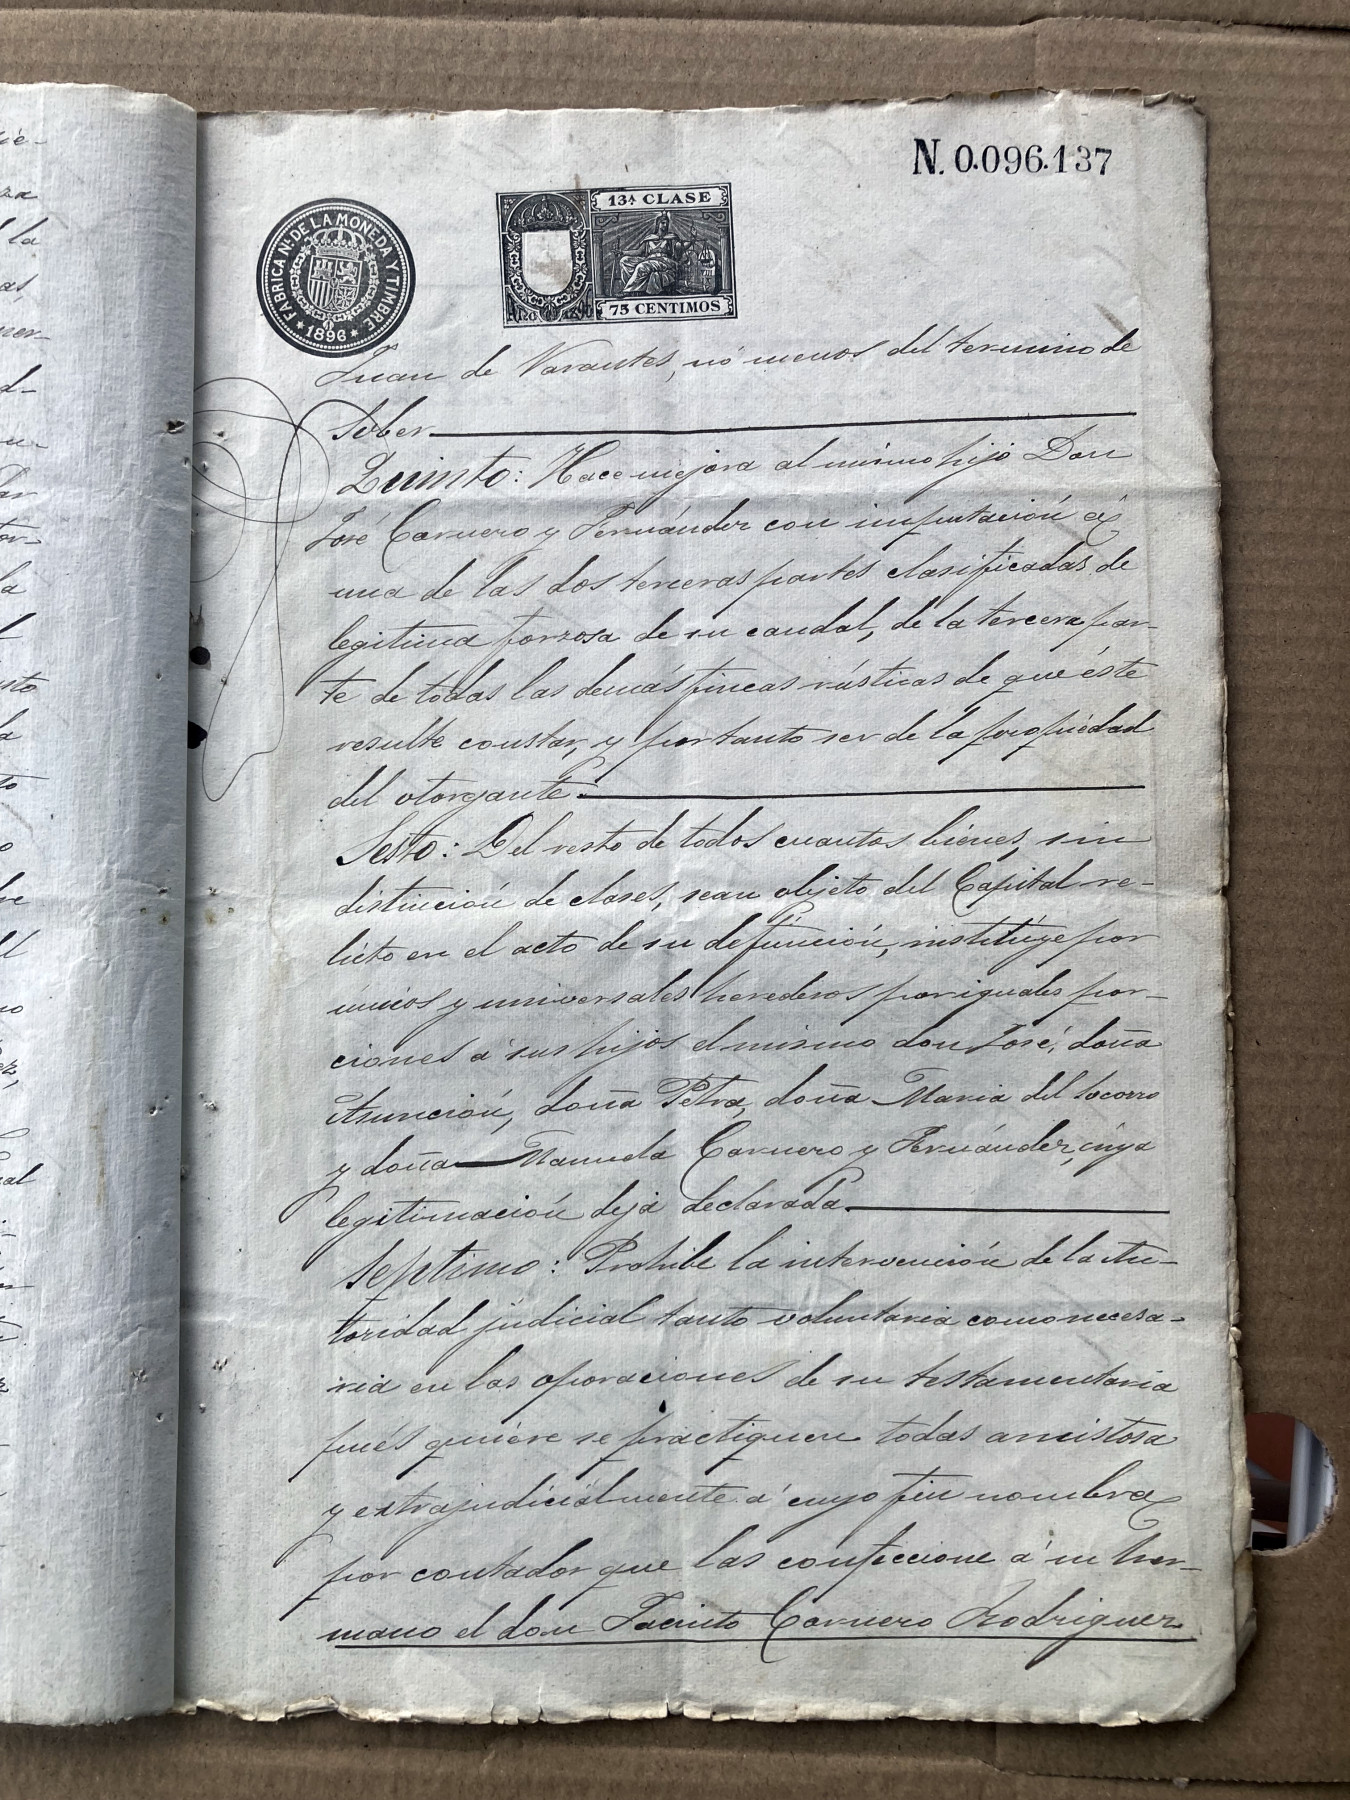 N. 0.096.137
FABRICA NL. DE LA MONEDA Y TIMBRE
* 1896 *
13ª CLASE
75 CENTIMOS
Juan de Varantes, nó menos del termino de
Sober
Quinto: Hace mejora al mismo hijo Don
José Carnero y Fernández con imputación á
una de las dos terceras partes clasificadas de
legitima forzosa de su caudal, de la tercera par-
te de todas las demás fincas rústicas de que éste
resulte constar, y por tanto ser de la propiedad
del otorgante.
Sesto: Del resto de todos cuantos bienes, sin
distinción de clases, sean objeto del Capital re-
licto en el acto de su defunción, instituye por
únicos y universales herederos por iguales por-
ciones á sus hijos el mismo don José, doña
Asunción, doña Petra, doña Maria del Socorro
y doña Manuela Carnero y Fernández, cuya
legitimación deja declarada.
Septimo: Prohibe la intervención de la Au-
toridad judicial tanto voluntaria como necesa-
ria en las operaciones de su testamentaria
pués quiere se practiquen todas amistosa
y extrajudicialmente á cuyo fin nombra
por contador que las confeccione á su her-
mano el don Jacinto Carnero Rodriguez
ié-
za
l la
as,
d-
ar
la
sto
a
to
o
re
ll
no
ez,
al